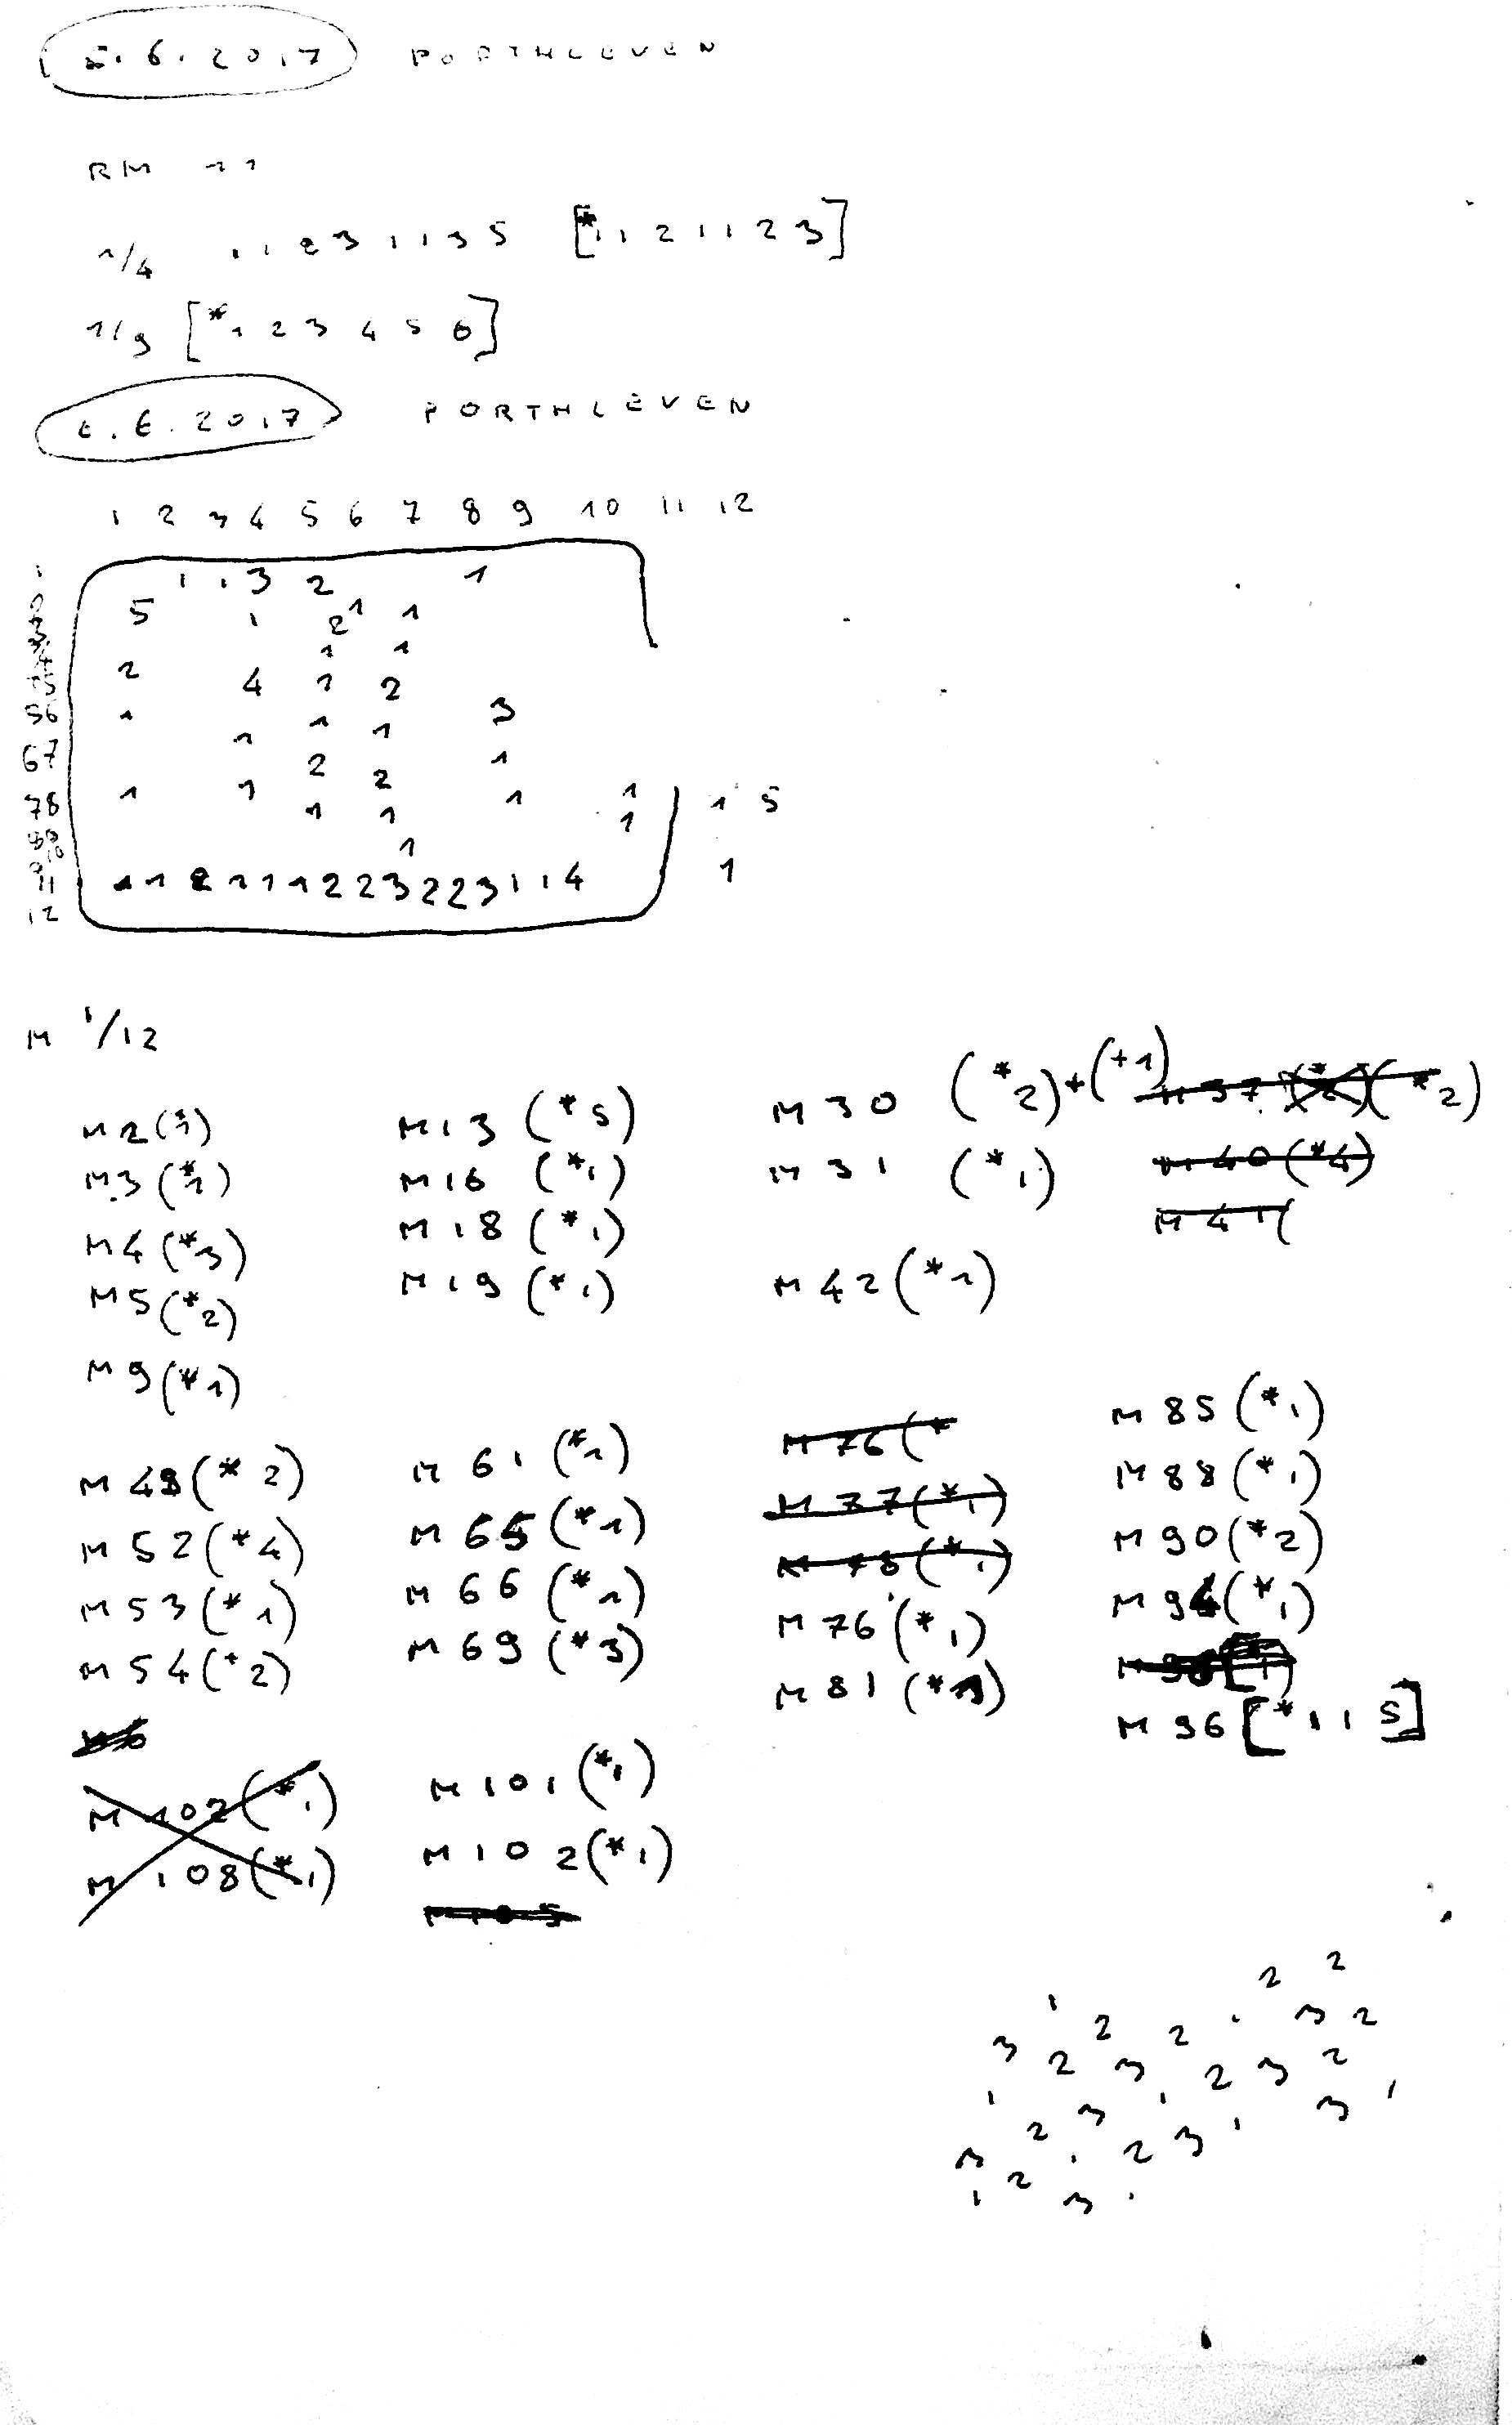 5.6.2017 PORTHLEVEN
RM 11
1/4 1 1 2 3 1 1 3 5 [*1 1 2 1 1 2 3]
1/9 [*1 2 3 4 5 6]
6.6.2017 PORTHLEVEN
1 2 3 4 5 6 7 8 9 10 11 12
1 1 1 3 2 1
5 1 2 1 1
1 1
2 4 1 2
56 1 1 3
1 1
67 2 1
2
78 1 1 1 1 1 5
1 1 1
1
11 1 1 2 1 1 1 2 2 3 2 2 3 1 1 4 1
12
M 1/12
M2(*1) M13(*5) M30 (*2)+(+1) M37(*2)(*2)
M3(*1) M16 (*1) M31 (*1) M40(*4)
M4(*3) M18 (*1) M41(
M5(*2) M19 (*1) M42(*1)
M9(*1)
M49(*2) M61(*1) M76(* M85(*1)
M52(*4) M65(*1) M77(*1) M88(*1)
M53(*1) M66(*1) M78(*1) M90(*2)
M54(*2) M69(*3) M76(*1) M94(*1)
M81(*1)
M96[*1 1 5]
M102(*1) M101(*1)
M108(*1) M102(*1)
M105
2 2
1 2 2 1 3 2
3 2 3 2 3 2
1 2 3 1 2 3 1 3 1
3 2 1 2 3
1 3 1